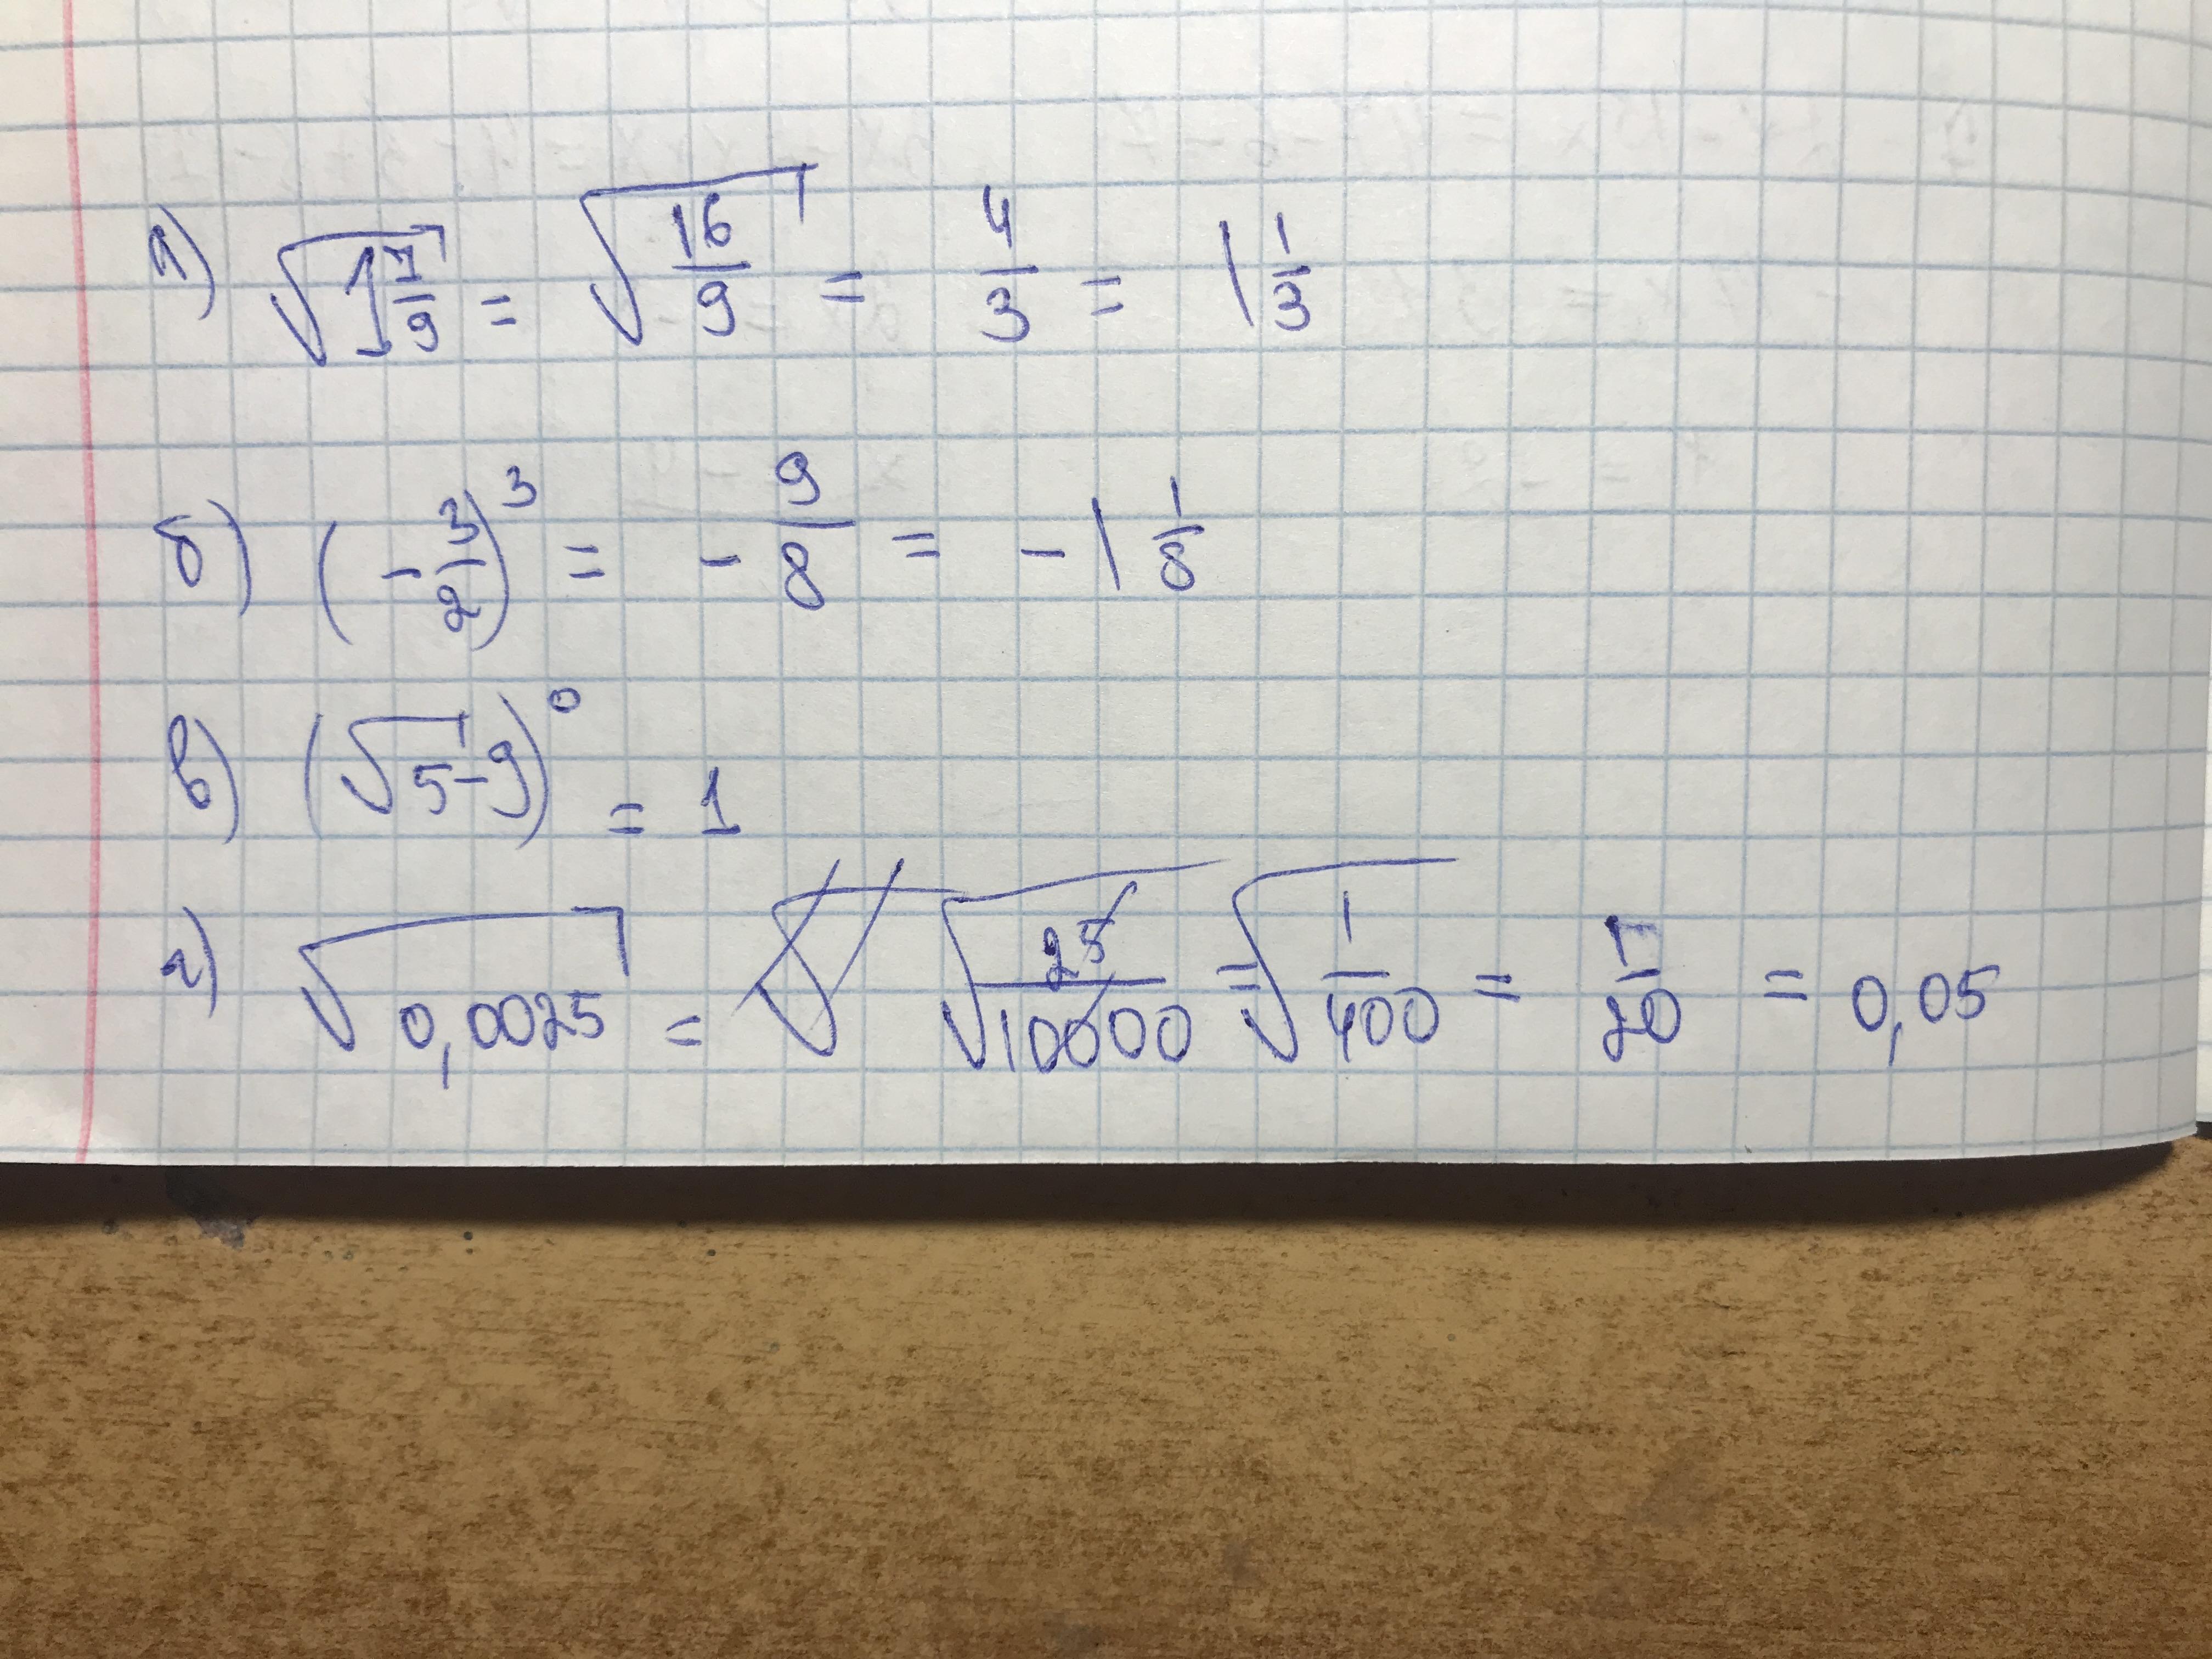 1) √(1 7/9) = √(16/9) = 4/3 = 1 1/3
б) (-3/2)³ = - 9/8 = -1 1/8
в) (√5-9)⁰ = 1
г) √0,0025 = √(25/10000) = √(1/400) = 1/20 = 0,05